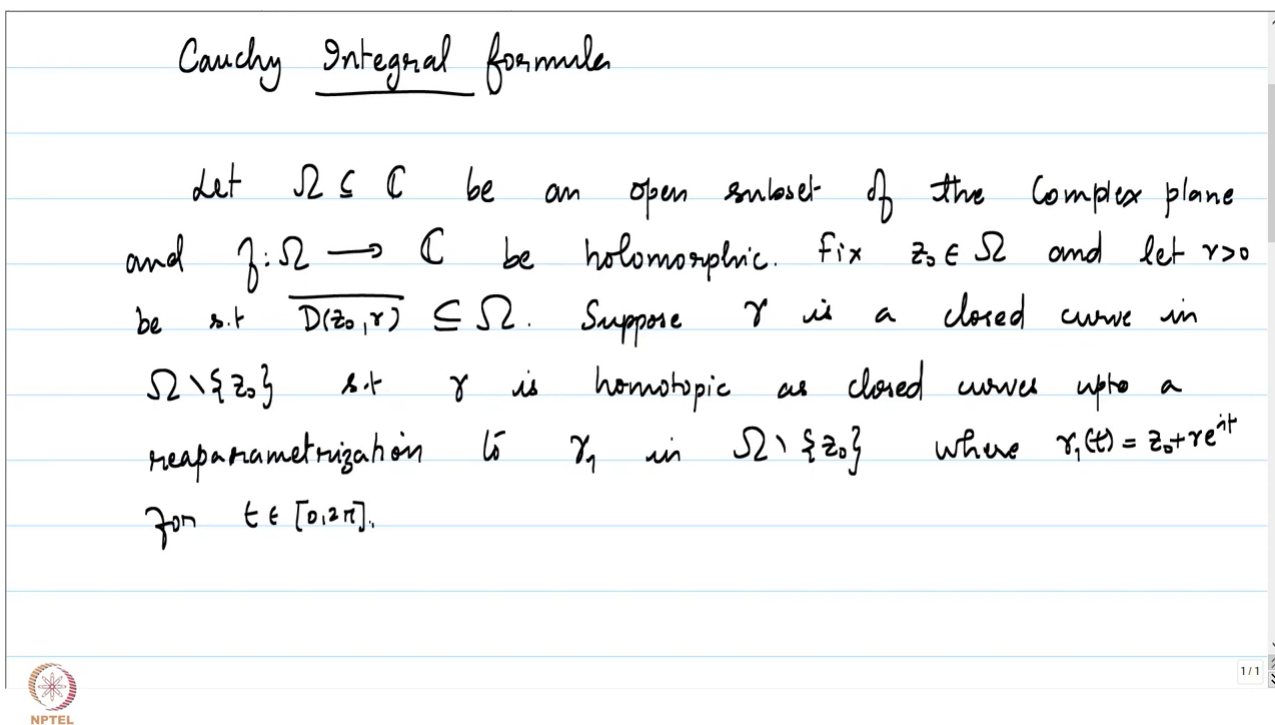 Cauchy Integral formula
Let Ω ⊆ ℂ be an open subset of the complex plane
and f: Ω ⟶ ℂ be holomorphic. Fix z₀ ∈ Ω and let r>0
be s.t $\overline{D(z_0, r)}$ ⊆ Ω. Suppose γ is a closed curve in
Ω \ {z₀} s.t γ is homotopic as closed curves upto a
reaparametrization to γ₁ in Ω \ {z₀} where γ₁(t) = z₀+re^{it}
for t ∈ [0,2π].
1/1
NPTEL